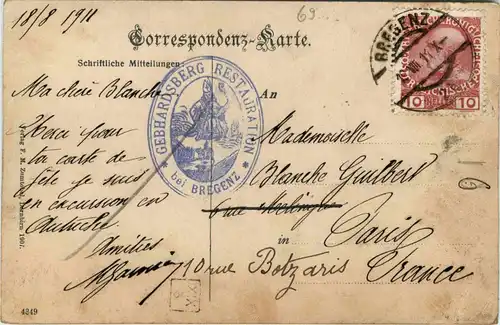 18/8 1911
69
Correspondenz-Karte.
Schriftliche Mitteilungen:
An
GEBHARDSBERG RESTAURATION
* bei BREGENZ *
BREGENZ
10 10
Ma chère Blanche
Merci pour
ta carte de
fête je suis
en excursion en
Autriche
Amitiés
Mademoiselle
Blanche Guilbert
6 rue
in Paris
70 rue Botzaris France
Verlag F. M. Dornbirn 1907.
4349